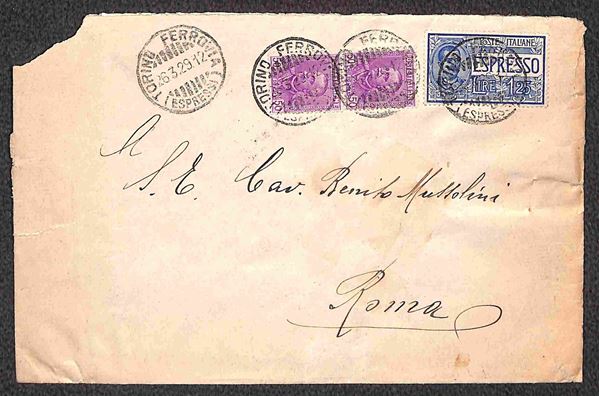 TORINO FERROVIA
6.3.29.12
(ESPRESSI)
TORINO FERROVIA
(ESPRESSI)
POSTE ITALIANE
ESPRESSO
LIRE 1,25
(ESPRESSI)
A
S. E. Cav. Benito Mussolini
Roma